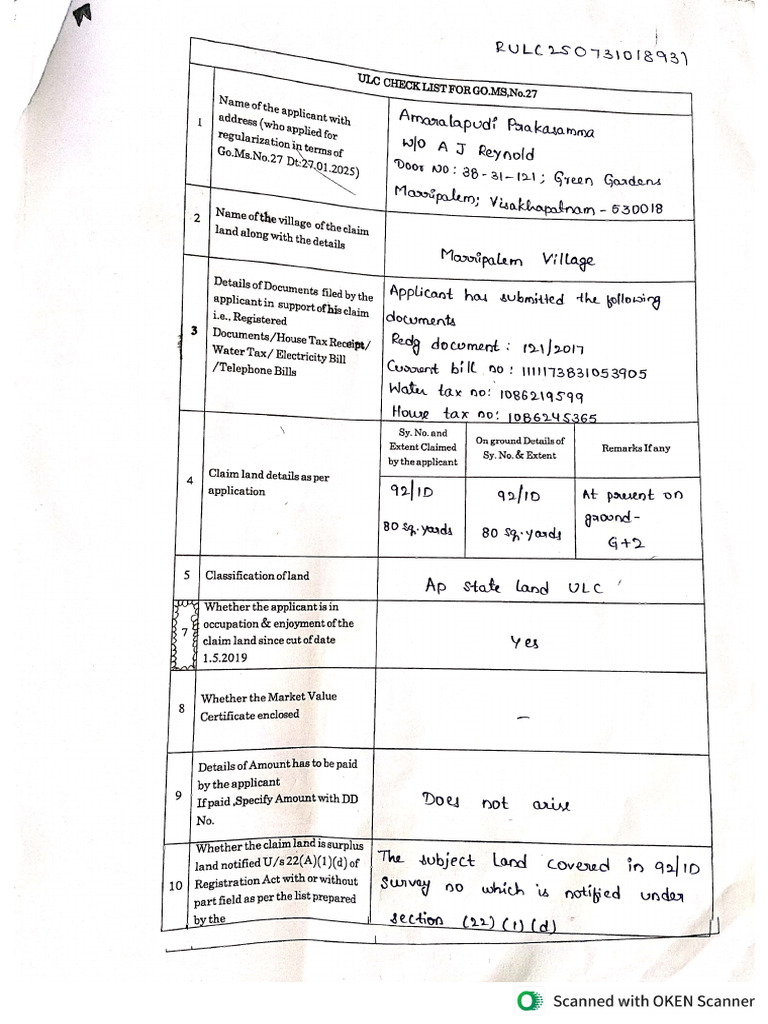 RULC250731018931
ULC CHECK LIST FOR GO.MS,No.27
1
Name of the applicant with
address (who applied for
regularization in terms of
Go.Ms.No.27 Dt:27.01.2025)
Amaralapudi Prakasamma
W/O A J Reynold
Door NO: 38-31-121; Green Gardens
Marripalem; Visakhapatnam - 530018
2
Name of the village of the claim
land along with the details
Marripalem Village
3
Details of Documents filed by the
applicant in support of his claim
i.e., Registered
Documents/House Tax Receipt/
Water Tax/ Electricity Bill
/Telephone Bills
Applicant has submitted the following
documents
Redg document : 121/2017
Current bill no : 1111173831053905
Water tax no: 1086219599
House tax no: 1086245365
4
Claim land details as per
application
Sy. No. and
Extent Claimed
by the applicant
On ground Details of
Sy. No. & Extent
Remarks If any
92/1D
80 Sq. yards
92/1D
80 Sq. yards
At present on
ground-
G+2
5
Classification of land
Ap state land ULC
7
Whether the applicant is in
occupation & enjoyment of the
claim land since cut of date
1.5.2019
Yes
8
Whether the Market Value
Certificate enclosed
-
9
Details of Amount has to be paid
by the applicant
If paid ,Specify Amount with DD
No.
Does not arise
10
Whether the claim land is surplus
land notified U/s 22(A)(1)(d) of
Registration Act with or without
part field as per the list prepared
by the
The subject land covered in 92/1D
Survey no which is notified under
section (22) (1) (d)
Scanned with OKEN Scanner